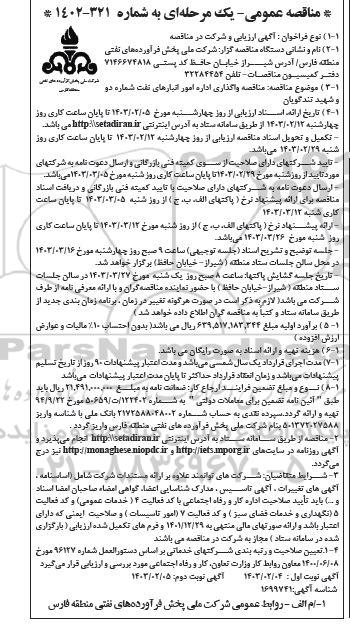 * مناقصه عمومی- یک مرحله‌ای به شماره ۳۲۱-۱۴۰۲ *
شرکت ملی پخش فرآورده‌های نفتی ایران
۱-۱) نوع فراخوان : آگهی ارزیابی و شرکت در مناقصه
۱-۲) نام و نشانی دستگاه مناقصه گزار: شرکت ملی پخش فرآورده‌های نفتی
منطقه فارس/ آدرس شیراز خیابان حافظ کد پستی ۷۱۴۶۶۷۴۸۱۸
دفتر کمیسیون مناقصات- تلفن ۳۲۲۸۴۴۵۴
۱-۳) موضوع مناقصه: مناقصه واگذاری اداره امور انبارهای نفت شماره دو
و شهید تندگویان
۱-۴) تاریخ ارائه، اسناد ارزیابی از روز چهارشنبه مورخ ۱۴۰۳/۰۲/۰۵ تا پایان ساعت کاری روز
چهارشنبه ۱۴۰۳/۰۲/۱۲ از طریق سامانه ستاد به آدرس اینترنتی http:\\setadiran.ir می باشد.
- تکمیل و تحویل اسناد مناقصه ارزیابی از روز چهارشنبه ۱۴۰۳/۰۲/۱۲ تا پایان ساعت کاری روز
شنبه ۱۴۰۳/۰۲/۲۹ می‌باشد.
- تایید شرکتهای دارای صلاحیت از سوی کمیته فنی بازرگانی و ارسال دعوت نامه به شرکتهای
مورد تایید از روز شنبه مورخ ۱۴۰۳/۰۲/۲۹ تا پایان ساعت کاری روز شنبه مورخ ۱۴۰۳/۰۳/۰۵ می‌باشد.
- ارسال دعوت نامه به شرکتهای دارای صلاحیت با تایید کمیته فنی بازرگانی و دریافت اسناد
مناقصه برای ارائه پیشنهاد نرخ ( پاکتهای الف، ب، ج ) از روز شنبه ۱۴۰۳/۰۳/۰۵ تا پایان ساعت
کاری شنبه ۱۴۰۳/۰۳/۱۲
- ارائه پیشنهاد نرخ ( پاکتهای الف، ب، ج ) از روز شنبه مورخ ۱۴۰۳/۰۳/۱۲ تا پایان ساعت کاری
روز شنبه مورخ ۱۴۰۳/۰۳/۲۶ می‌باشد.
- جلسه توضیح و تشریح اسناد (جلسه توجیهی) ساعت ۹ صبح روز چهارشنبه مورخ ۱۴۰۳/۰۳/۱۶
در محل سالن جلسات ستاد منطقه ( شیراز- خیابان حافظ) برگزار خواهد شد.
- تاریخ جلسه گشایش پاکتها: ساعت ۸ صبح روز یک شنبه مورخ ۱۴۰۳/۰۳/۲۷ در سالن جلسات
ستاد منطقه ( شیراز-خیابان حافظ ) با حضور نماینده مناقصه گران و با ارائه معرفی نامه از طرف
شرکت می باشد( لازم به ذکر است در صورت هرگونه تغییر در زمان ، برنامه زمان بندی جدید از
طریق سامانه ستاد و کتبا به مناقصه گران اطلاع داده خواهد شد )
۱-۵ ) برآورد اولیه مبلغ ۶۳۹,۵۱۷,۱۸۳,۳۴۴ ریال می باشد( بدون احتساب ۱۰٪ مالیات و عوارض
ارزش افزوده )
۱-۶) هزینه تهیه و ارائه اسناد به صورت رایگان می باشد.
۱-۷) مدت اجرای قرارداد یک سال شمسی می‌باشد و مدت اعتبار پیشنهادات ۹۰ روز از تاریخ تسلیم
پیشنهادات می‌باشد و زمان انعقاد قرارداد حداکثر تا پایان مدت اعتبار پیشنهادات می باشد
۱-۸) نوع و مبلغ تضمین فرایند ارجاع کار: ضمانت نامه به مبلغ ۲۱,۴۹۱,۰۰۰,۰۰۰ ریال باید
طبق " آئین نامه تضمین برای معاملات دولتی " به شماره ۱۲۳۴۰۲/ت۵۰۶۵۹ مورخ ۹۴/۹/۲۲
تهیه و ارائه گردد. سپرده نقدی به حساب ۲۱۷۲۵۸۸۰۴۸۰۰۲ بانک ملی با شناسه واریز
۵۰۱۳۷۲۰۲۷۵۸۸ بنام شرکت ملی پخش فرآورده های نفتی منطقه فارس واریز گردد .
۲- مناقصه از طریق سامانه ستاد به آدرس اینترنتی http:\\setadiran.ir انجام می‌پذیرد و
آگهی روزنامه در سایت‌های http:\\iets.mporg.ir و http:\\monaghese.niopdc.ir نیز درج
می‌گردد.
۳- شرایط متقاضیان: شرکت های توانمند علاوه بر ارائه مستندات شرکت شامل (اساسنامه ،
آگهی های تغییرات ، آگهی تاسیس ، مدارک شناسایی اعضا، گواهی امضاء صاحبان امضا اسناد
و ... ) باید تأیید صلاحیت اداره کار و رفاه اجتماعی با کد فعالیت ۴ ( خدمات عمومی) و کد فعالیت
۵ (نگهداری و خدمات فضای سبز ) و کد فعالیت ۷ (امور تاسیسات ) و صلاحیت ایمنی که دارای
اعتبار باشد و ارائه صورتهای مالی منتهی به ۱۴۰۱/۱۲/۲۹ و فرم های تکمیل شده ارزیابی ( بارگزاری
شده در سامانه ستاد ) مجاز به شرکت در مناقصه می باشند
۴-۱. تعیین صلاحیت و رتبه بندی شرکتهای خدماتی بر اساس دستورالعمل شماره ۹۶۱۲۷ مورخ
۱۴۰۰/۰۶/۰۸ معاون روابط کار وزارت تعاون، کار و رفاه اجتماعی مورد بررسی و ارزیابی قرار می‌گیرد
آگهی نوبت اول : ۱۴۰۳/۰۲/۰۴ آگهی نوبت دوم: ۱۴۰۳/۰۲/۰۵
شناسه آگهی: ۱۶۹۹۷۴۱
۱-/م الف - روابط عمومی شرکت ملی پخش فرآورده‌های نفتی منطقه فارس